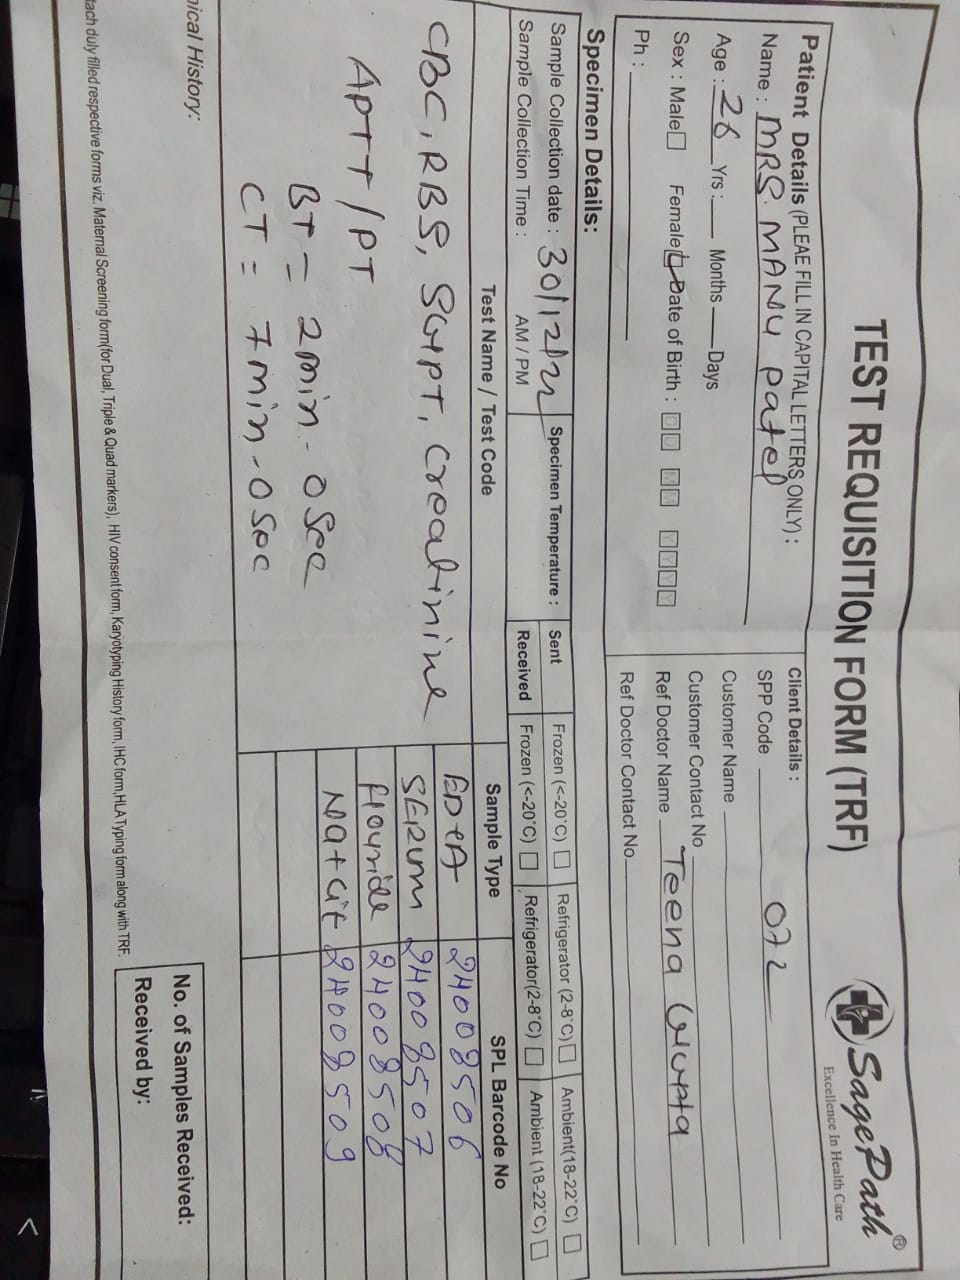 TEST REQUISITION FORM (TRF)
SagePath®
Excellence In Health Care
Patient Details (PLEAE FILL IN CAPITAL LETTERS ONLY) :
Name : MRS. MANU Patel
Age : 26 Yrs : Months Days
Sex : Male Female Date of Birth : D D M M Y Y Y Y
Ph :
Client Details :
SPP Code 072
Customer Name
Customer Contact No
Ref Doctor Name Teena Gupta
Ref Doctor Contact No.
Specimen Details:
Sample Collection date : 30/12/21 Specimen Temperature : Sent Frozen (<-20°C) Refrigerator (2-8°C) Ambient(18-22°C)
Sample Collection Time : AM / PM Received Frozen (<-20°C) Refrigerator(2-8°C) Ambient (18-22°C)
Test Name / Test Code Sample Type SPL Barcode No
CBC, RBS, SGPT, Creatinine EDTA 24008506
SERUM 24008507
APTT / PT Flouride 24008508
BT = 2 min - 0 Sec Na+ Cit 24008509
CT = 7 min - 0 Sec
nical History:
No. of Samples Received:
Received by:
tach duly filled respective forms viz. Maternal Screening form(for Dual, Triple & Quad markers), HIV consent form, Karyotyping History form, IHC form,HLA Typing form along with TRF.